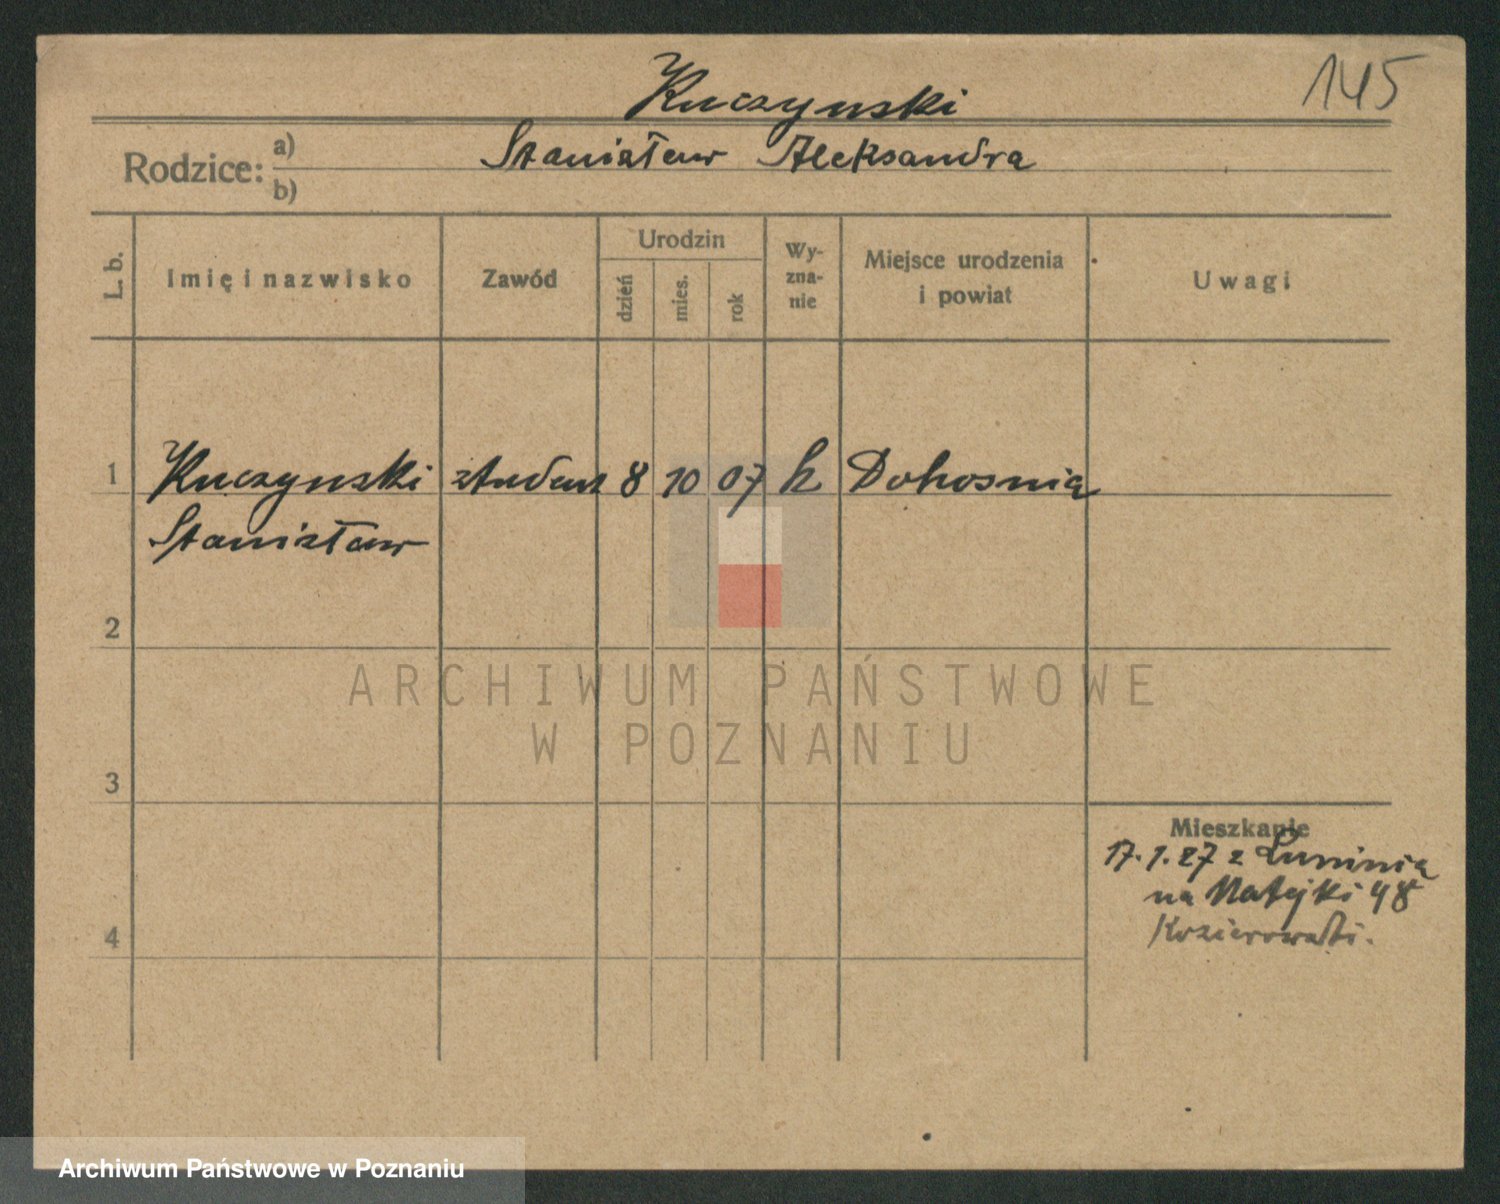 145
Kuczynski
Rodzice: a) Stanisław Aleksandra
b)
L. b. Imię i nazwisko Zawód Urodzin dzień mies. rok Wy-zna-nie Miejsce urodzenia i powiat Uwagi
1 Kuczynski student 8 10 07 k
Stanisław
2
ARCHIWUM PAŃSTWOWE
W POZNANIU
3
Mieszkanie
17.1.27 z Luninia
na Matejki 48
4
Archiwum Państwowe w Poznaniu